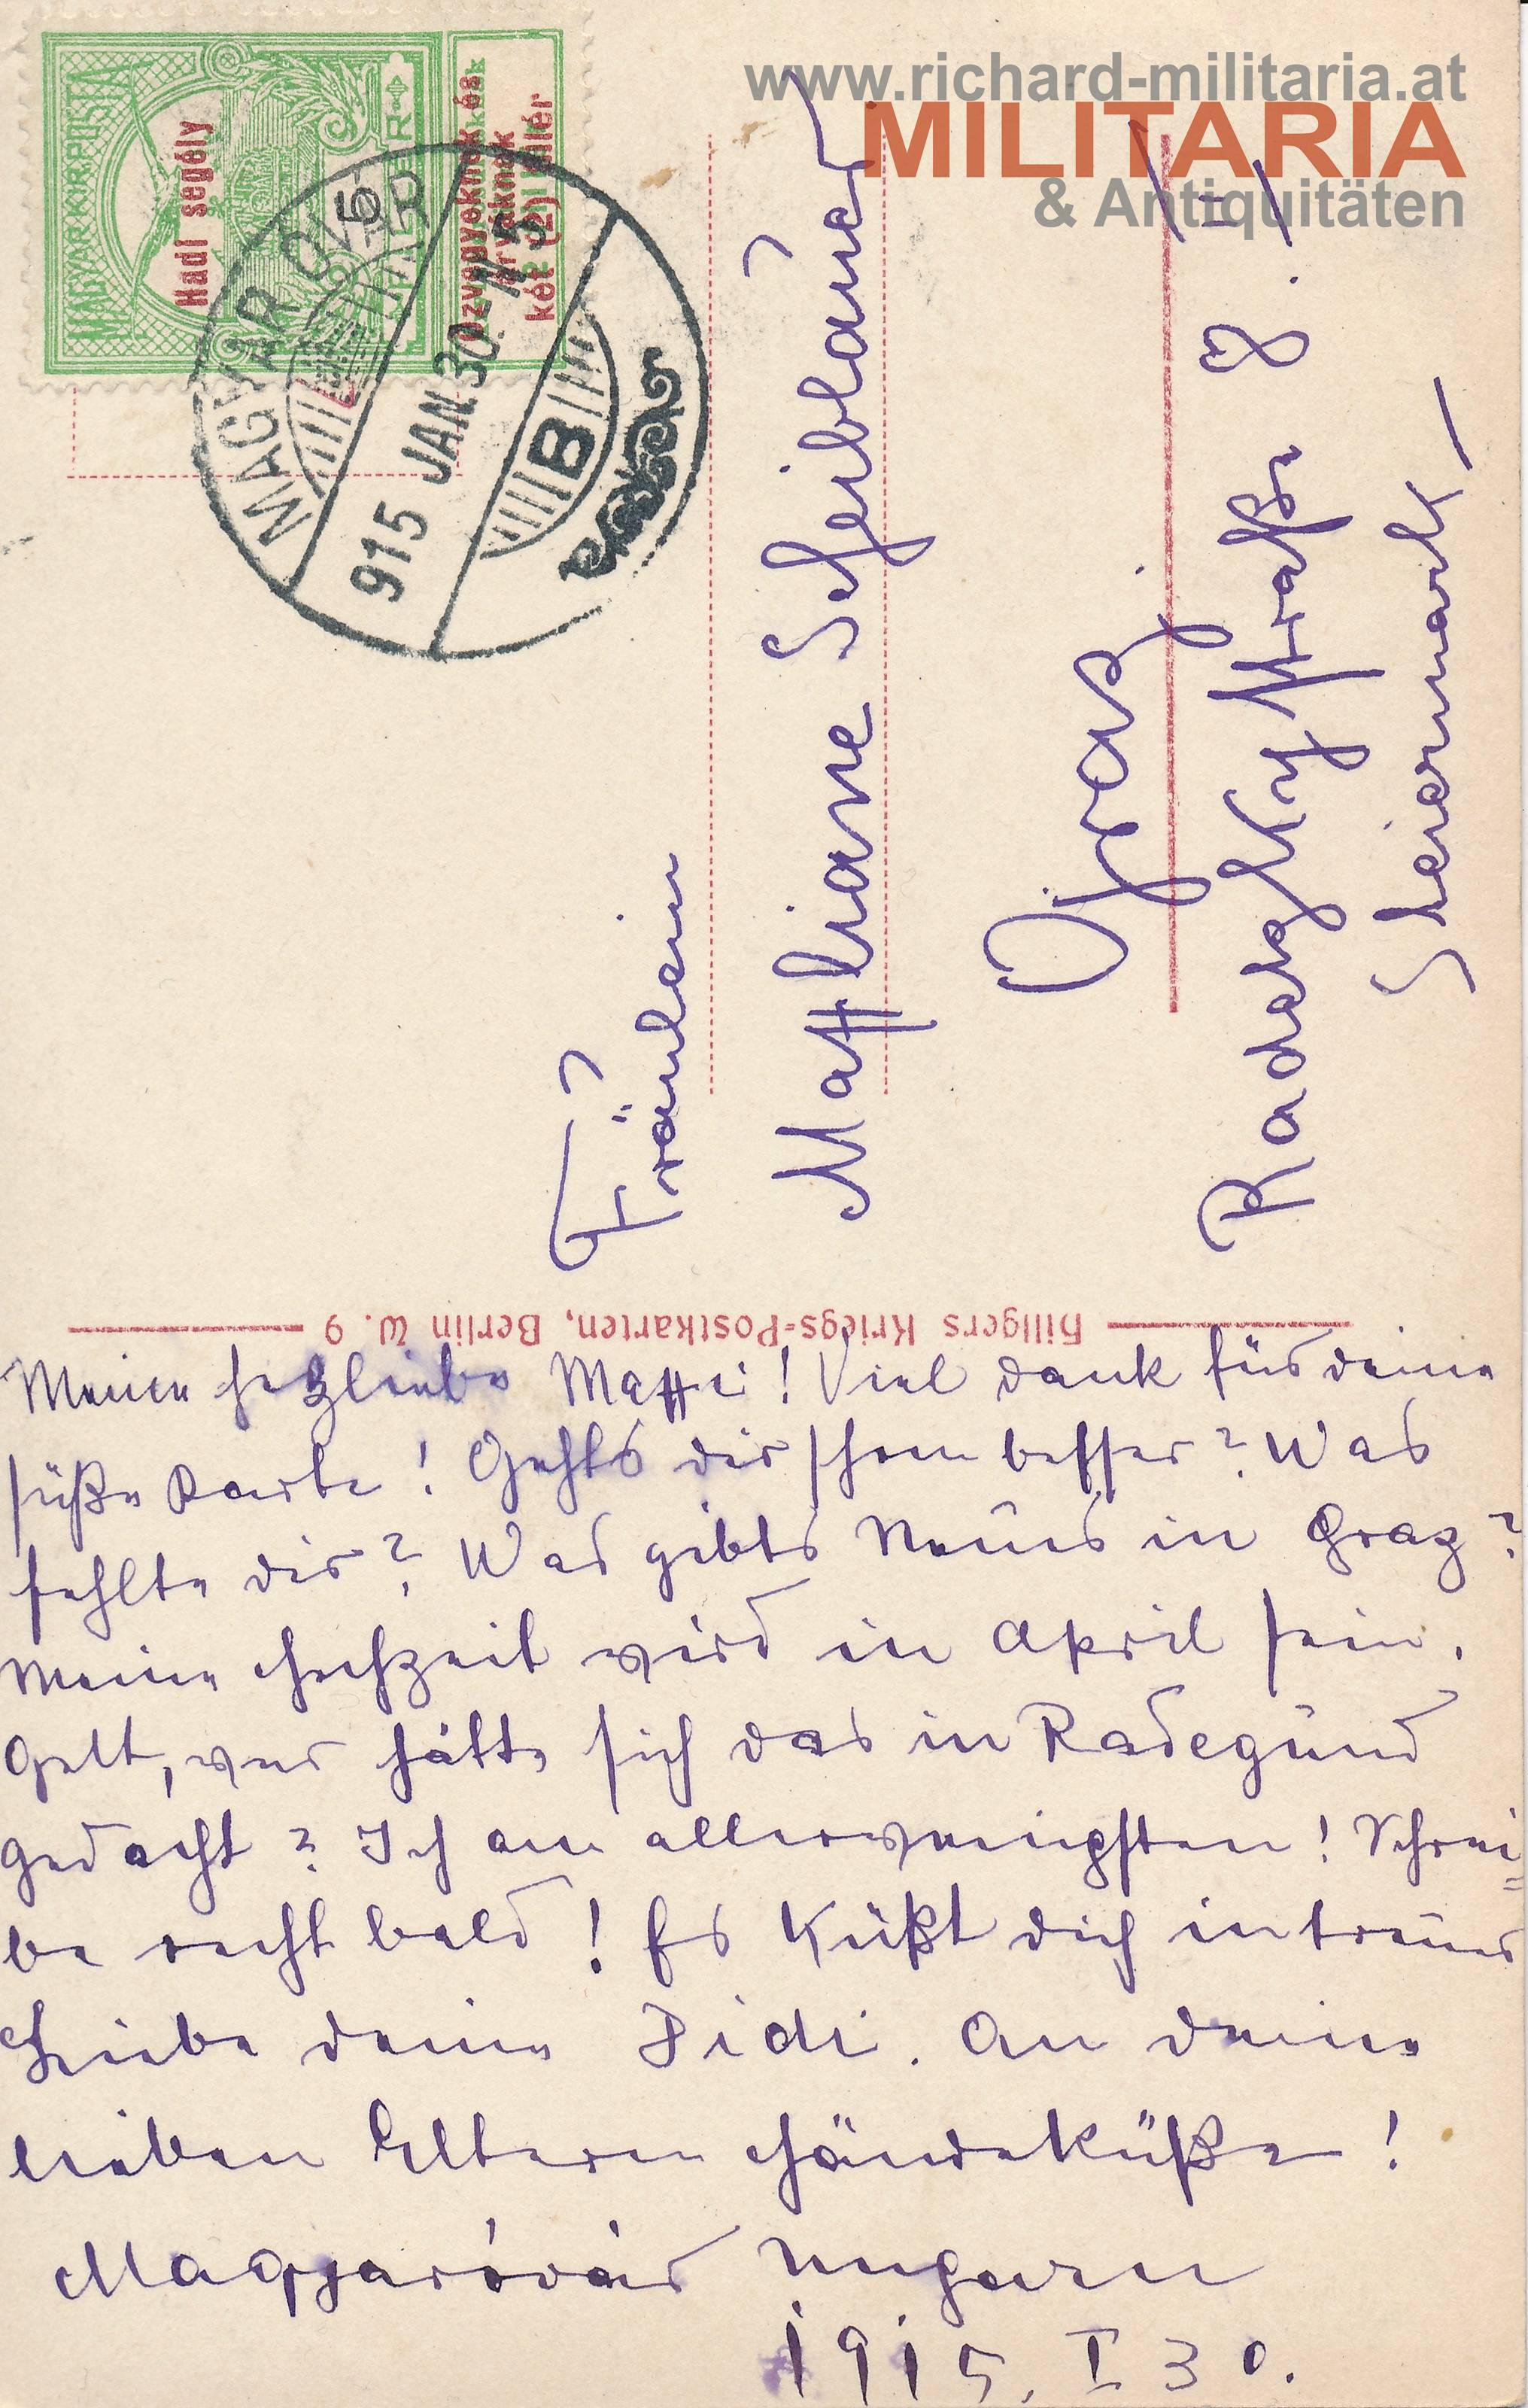 www.richard-militaria.at
MILITARIA
& Antiquitäten
MAGYARKIR.POSTA
Hadi segély
5
két (2) fillér
MAGYAR
915 JAN 30
B
Fräulein
Mattliane Scheiblauer
Graz.
Radetzky Straße 8. II
Steiermark
Hilgers Kriegs=Postkarten, Berlin W. 9
Meine herzliebe Mattei! Viel dank für deine
süße Karte! Gehts dir schon besser? Was
fehlte dir? Was gibts Neues in Graz?
Meine Hochzeit wird in April sein.
Gelt, wer hätte sich das in Radegund
gedacht? Ich am allerwenigsten! Schrei=
be recht bald! Es küßt dich in treuer
Liebe deine Didi. An deine
lieben Eltern Händeküße!
Magyaróvár Ungarn
1915. I 30.